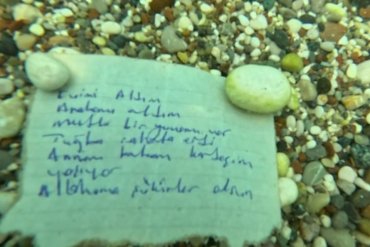 Evimi Aldım
Arabamı aldım
mutlu bir yuvam var
Tuğba rahata erdi
Annem babam kardeşim
yanıyor
Allahıma şükürler olsun